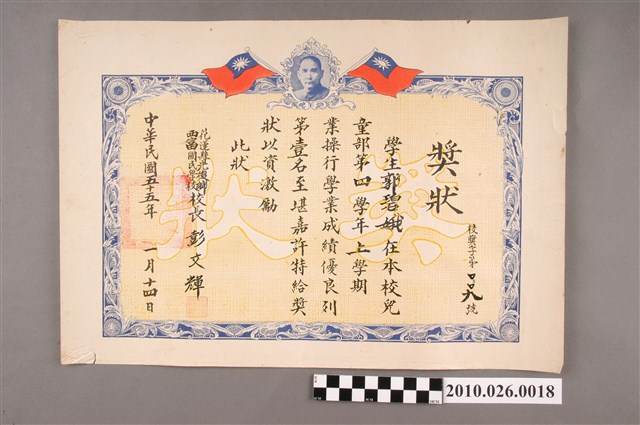 獎狀
校獎字第四四九號
學生郭碧娥在本校兒
童部第四學年上學期
業操行學業成績優良列
第壹名至堪嘉許特給獎
狀以資激勵
此狀
花蓮縣光復鄉
西富國民學校
校長彭文輝
中華民國五十五年 一月十四日
獎狀
2010.026.0018